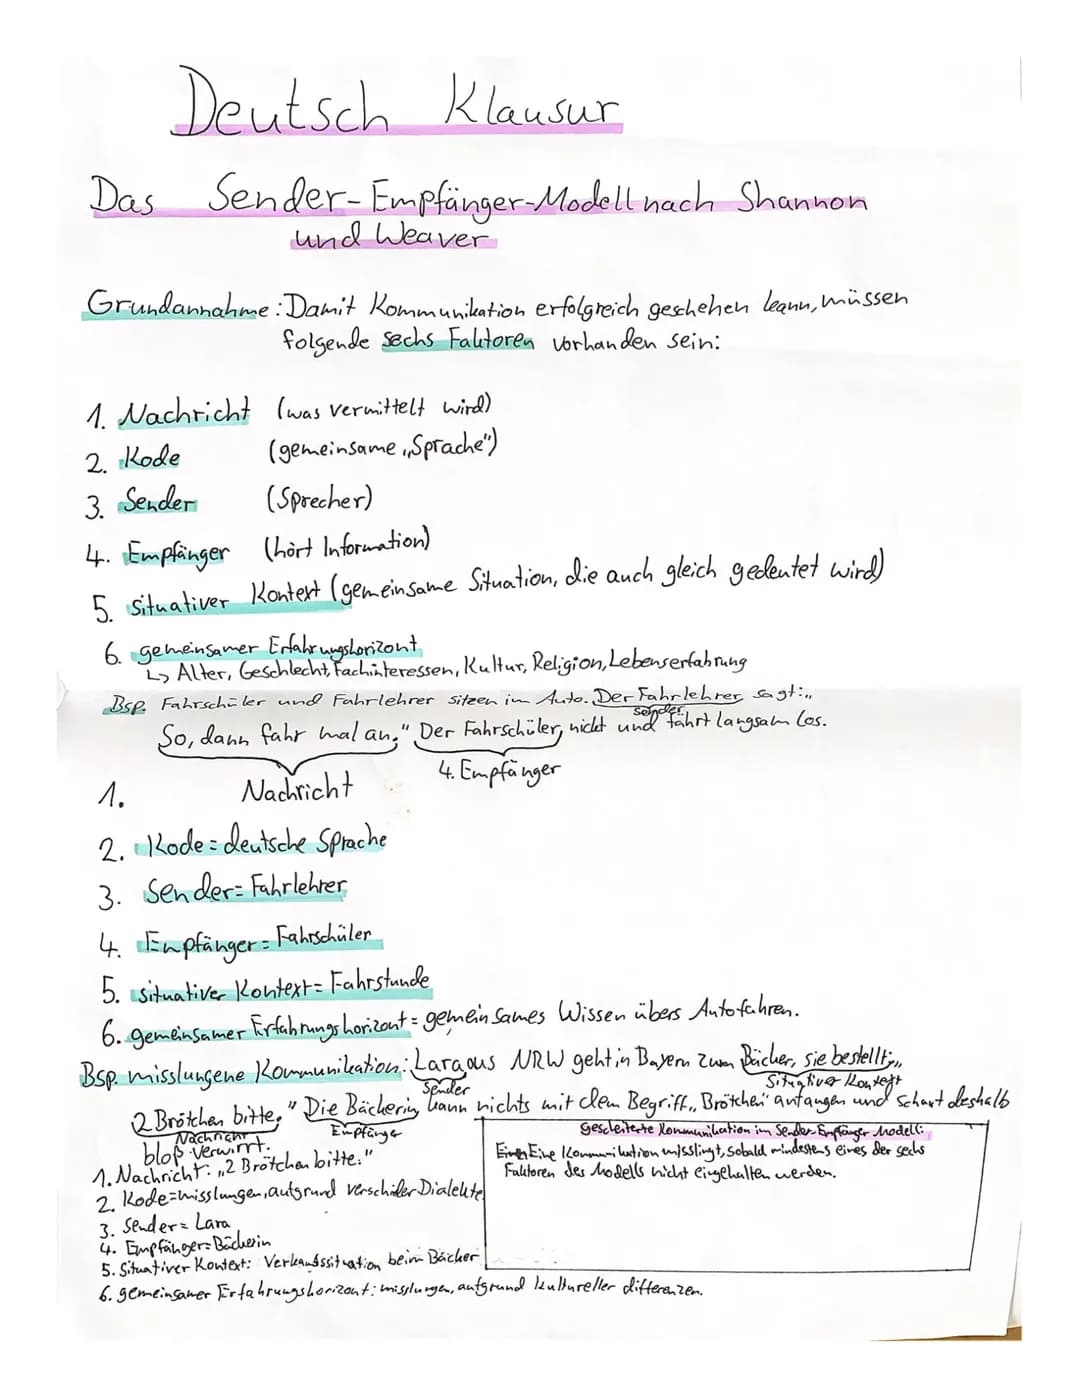 Deutsch Klausur
Das Sender-Empfänger-Modell nach Shannon
und Weaver
Grundannahme: Damit Kommunikation erfolgreich geschehen kann, müssen
folgende sechs Faktoren vorhanden sein:
1. Nachricht (was vermittelt wird)
2. Kode (gemeinsame „Sprache")
3. Sender (Sprecher)
4. Empfänger (hört Information)
5. situativer Kontext (gemeinsame Situation, die auch gleich gedeutet wird)
6. gemeinsamer Erfahrungshorizont
↳ Alter, Geschlecht, Fachinteressen, Kultur, Religion, Lebenserfahrung
Bsp. Fahrschüler und Fahrlehrer sitzen im Auto. Der Fahrlehrer sagt: „
Sender
So, dann fahr mal an." Der Fahrschüler nickt und fährt langsam los.
4. Empfänger
1. Nachricht
2. Kode = deutsche Sprache
3. Sender = Fahrlehrer
4. Empfänger = Fahrschüler
5. situativer Kontext = Fahrstunde
6. gemeinsamer Erfahrungshorizont = gemeinsames Wissen übers Autofahren.
Bsp. misslungene Kommunikation: Lara aus NRW geht in Bayern zum Bäcker, sie bestellt: „
Sender
Situativer Kontext
2 Brötchen bitte." Die Bäckerin kann nichts mit dem Begriff „Brötchen" anfangen und schaut deshalb
Nachricht
Empfänger
bloß verwirrt.
1. Nachricht: „2 Brötchen bitte."
2. Kode = misslungen, aufgrund verschider Dialekte
3. Sender = Lara
4. Empfänger = Bäckerin
5. Situativer Kontext: Verkaufssituation beim Bäcker
6. gemeinsamer Erfahrungshorizont: misslungen, aufgrund kultureller differenzen.
Gescheiterte Kommunikation im Sender-Empfänger Modell:
Eine Kommunikation misslingt, sobald mindestens eines der sechs
Faktoren des Modells nicht eingehalten werden.